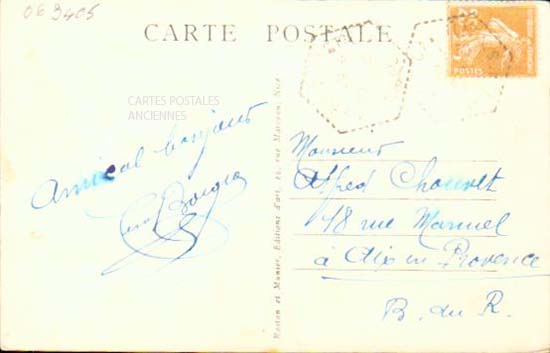 069405
CARTE POSTALE
POSTES
CARTES POSTALES
ANCIENNES
Amical bonjour
Monsieur
Alfred Chouvet
48 rue Manuel
à Aix en Provence
B. du R.
Rostan et Munier, Editions d'art, rue Nice